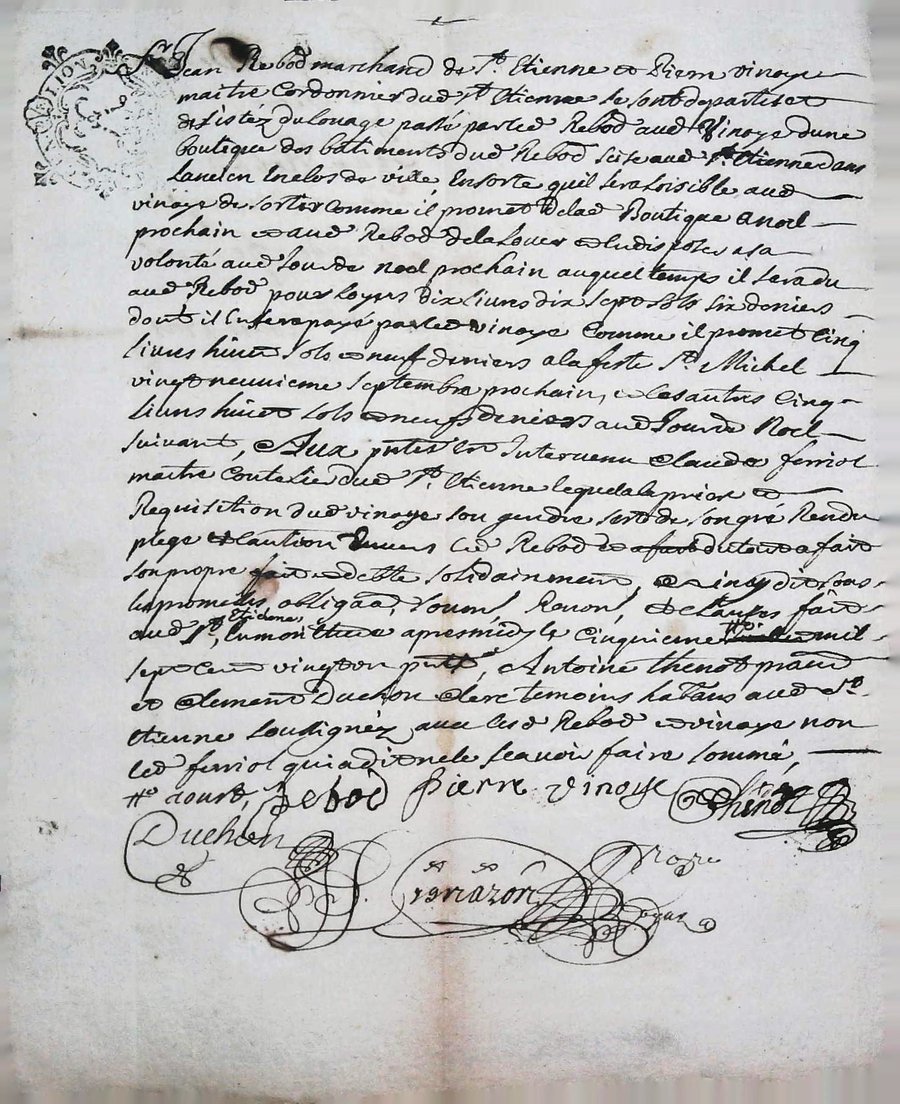 LION
Sr Jean Rebod marchand de St Etienne et Pierre vinoye
maitre Cordonnier dud St Etienne se sont departis et
desistéz du louage passé par led Rebod aud Vinoye dune
boutique des bâtiments dud Rebod scise aud St Etienne dans
lancien Enclos de ville Ensorte quil sera loisible aud
vinoye de sortir comme il promet de lad Boutique a noel
prochain et aud Rebod de la louer et en disposer a sa
volonté aud Jour de noel prochain auquel temps il sera du
aud Rebod pour loyers dix livres dix sept sols six deniers
dont il En sera payé par led vinoye Comme il promet Cinq
livres huict sols et neuf deniers a la feste St Michel
vingt neuvieme septembre prochain, et les autres Cinq
livres huict sols et neufs deniers aud Jour de Noel
suivant, Aux pntes Est Intervenu Claude ferriol
maitre Coutelie dud St Etienne lequel a la priere et
Requisition dud vinoye son gendre sest de son gré Rendu
plege et Caution Envers led Rebod et a fait du tout a fait
son propre fait et debte solidairement, et ainsy dit sous
les promesses, obligaõn, soumõ, Renonõ, et clauses fait
aud St Etienne, En mon Etude apres midy le Cinquieme
sept Cent vingt un pntz Antoine Thenot pratd
et Clement Duchon Clerc temoins hatans aud St
Etienne soussignéz avec lesd Rebod et vinoye non
led ferriol qui a dit ne le scavoir faire sommé,
Rebod Pierre Vinoye Thenot
Duchon